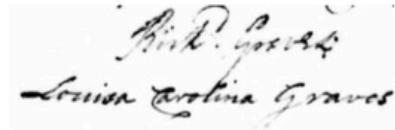 Richd. Graves
Louisa Carolina Graves